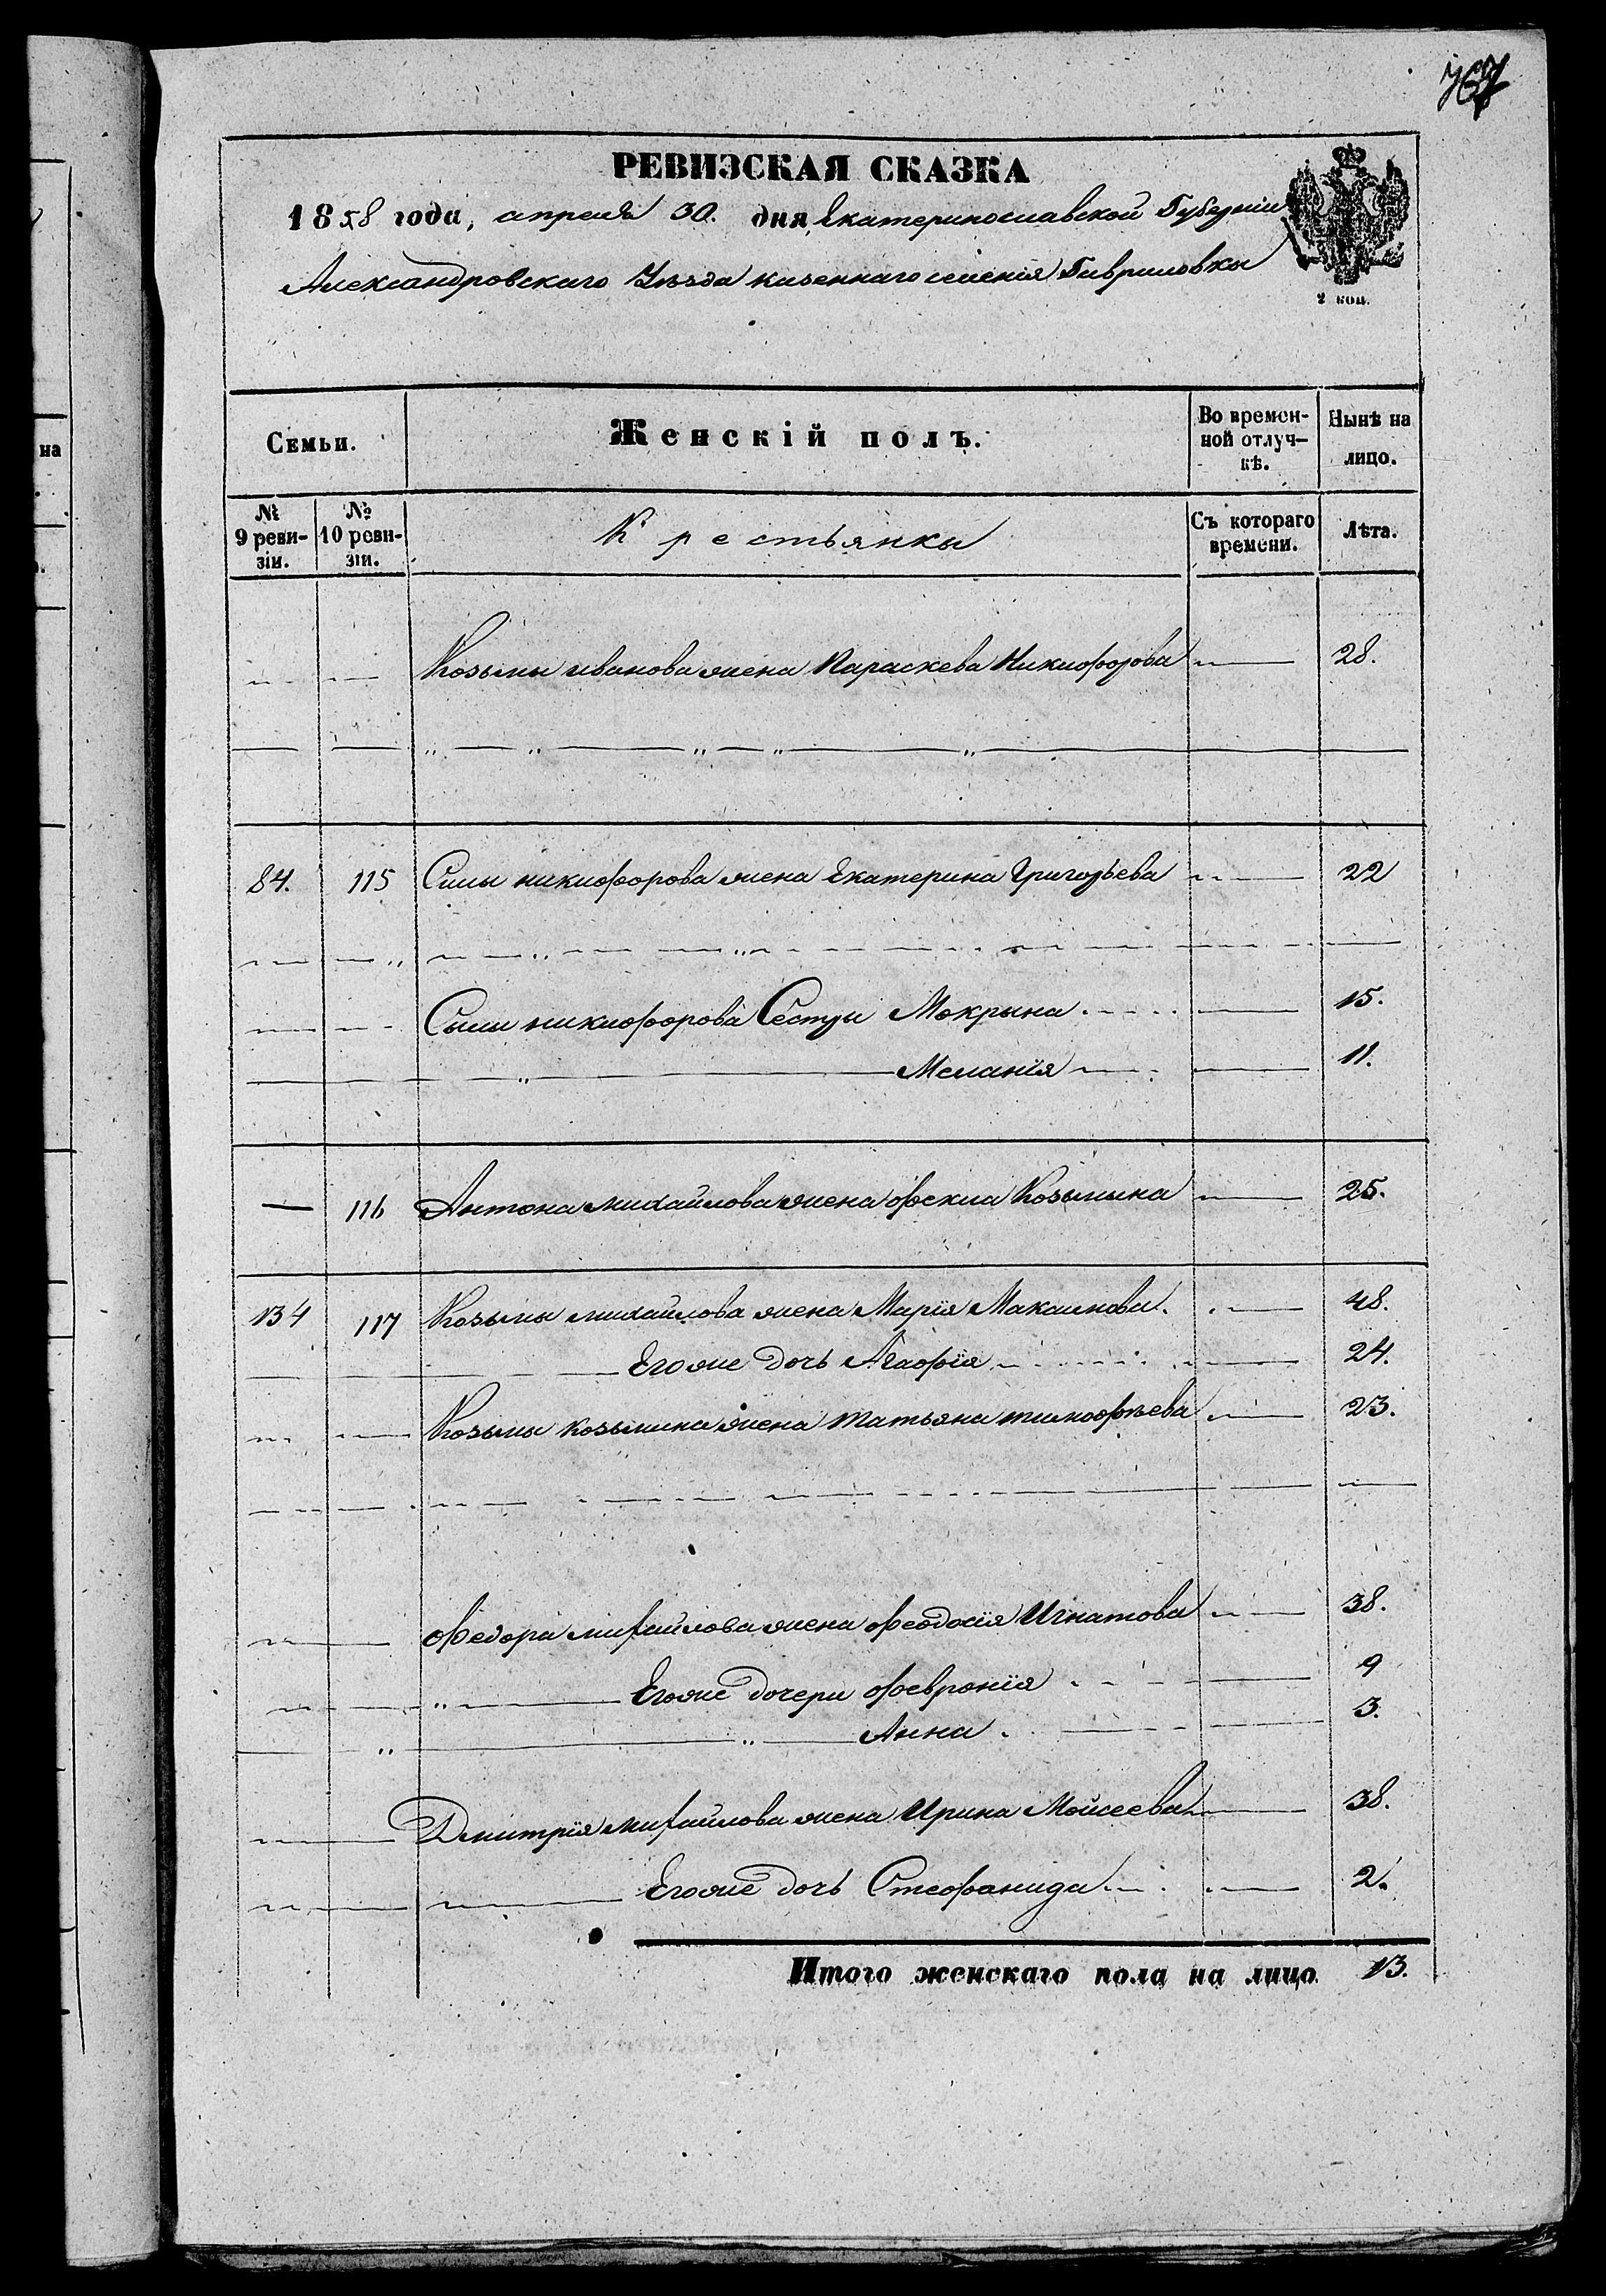 РЕВИЗСКАЯ СКАЗКА
1858 года, апреля 30. дня, Екатеринославской Губернiи
Александровскаго Уѣзда казеннаго селенiя Гавриловки
2 коп.
на
Семьи.
Женскiй полъ.
Во времен-
ной отлуч-
кѣ.
Нынѣ на
лицо.
№
9 реви-
зiи.
№
10 реви-
зiи.
Крестьянки
Съ котораго
времени.
Лѣта.
Козьмы иванова жена Параскева Никифорова 28.
84. 115 Силы никифорова жена Екатерина Григорьева 22
Сылы никифорова Сестры Мокрына 15.
Меланiя 11.
— 116 Антона михайлова жена Фекла Козьмина 25.
134 117 Козьмы михайлова жена Марiя Максимова. 48.
Егоже дочь Агафiя 24.
Козьмы козьмина жена татьяна тимофѣева 23.
Федора михайлова жена Феодосiя Игнатова 38.
Егоже дочери Февронiя 9
Анна. 3.
Дмитрiя михайлова жена Ирина Мойсеева 38.
Егоже дочь Стефанида 2.
Итого женскаго пола на лицо 13.